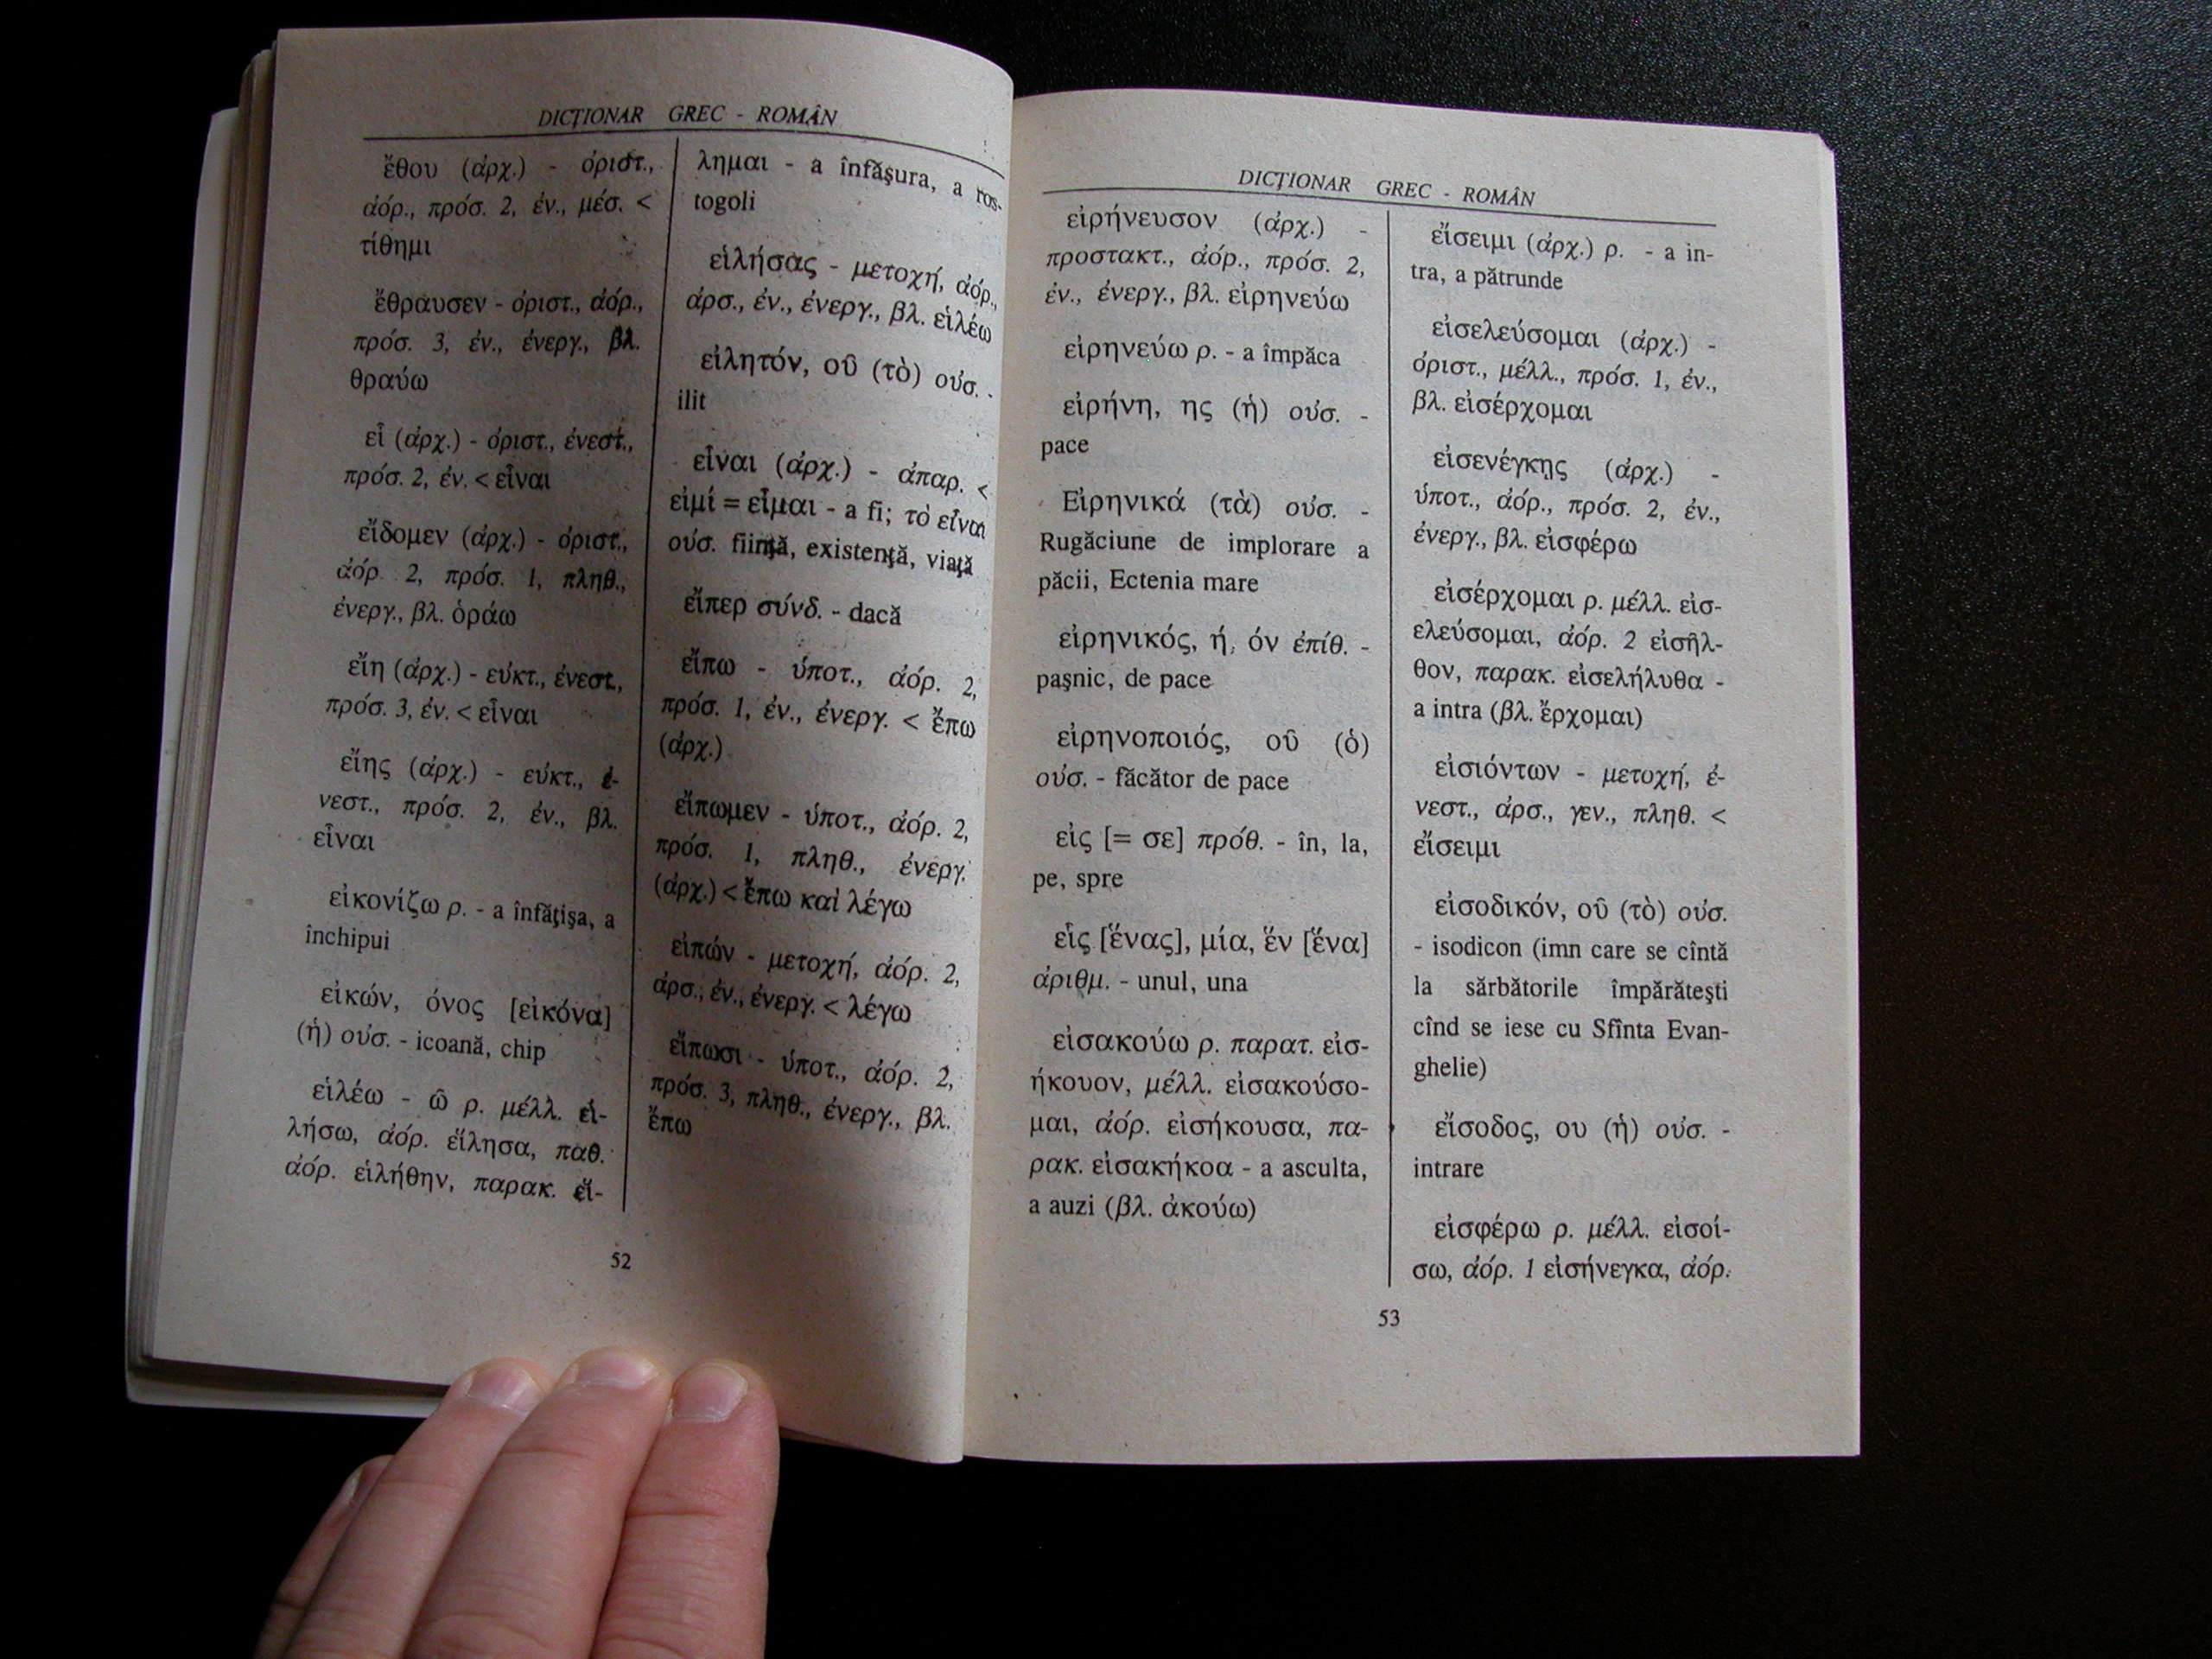 DICŢIONAR GREC - ROMÂN
ἔθου (ἀρχ.) - ὁριστ.,
ἀόρ., πρόσ. 2, ἑν., μέσ. <
τίθημι
ἔθραυσεν - ὁριστ., ἀόρ.,
πρόσ. 3, ἑν., ἐνεργ., βλ.
θραύω
εἶ (ἀρχ.) - ὁριστ., ἐνεστ.,
πρόσ. 2, ἑν. < εἶναι
εἴδομεν (ἀρχ.) - ὁριστ.,
ἀόρ. 2, πρόσ. 1, πληθ.,
ἐνεργ., βλ. ὁράω
εἴη (ἀρχ.) - εὐκτ., ἐνεστ.,
πρόσ. 3, ἑν. < εἶναι
εἴης (ἀρχ.) - εὐκτ., ἐ-
νεστ., πρόσ. 2, ἑν., βλ.
εἶναι
εἰκονίζω ρ. - a înfăţişa, a
închipui
εἰκών, όνος [εἰκόνα]
(ἡ) οὐσ. - icoană, chip
εἱλέω - ῶ ρ. μέλλ. εἱ-
λήσω, ἀόρ. εἵλησα, παθ.
ἀόρ. εἱλήθην, παρακ. εἵ-
λημαι - a înfăşura, a ros-
togoli
εἱλήσας - μετοχή, ἀόρ.,
ἀρσ., ἑν., ἐνεργ., βλ. εἱλέω
εἰλητόν, οῦ (τὸ) οὐσ. -
ilit
εἶναι (ἀρχ.) - ἀπαρ. <
εἰμί = εἶμαι - a fi; τὸ εἶναι
οὐσ. fiinţă, existenţă, viaţă
εἴπερ σύνδ. - dacă
εἴπω - ὑποτ., ἀόρ. 2,
πρόσ. 1, ἑν., ἐνεργ. < ἔπω
(ἀρχ.)
εἴπωμεν - ὑποτ., ἀόρ. 2,
πρόσ. 1, πληθ., ἐνεργ.
(ἀρχ.) < ἔπω καὶ λέγω
εἰπών - μετοχή, ἀόρ. 2,
ἀρσ., ἑν., ἐνεργ. < λέγω
εἴπωσι - ὑποτ., ἀόρ. 2,
πρόσ. 3, πληθ., ἐνεργ., βλ.
ἔπω
52
DICŢIONAR GREC - ROMÂN
εἰρήνευσον (ἀρχ.) -
προστακτ., ἀόρ., πρόσ. 2,
ἑν., ἐνεργ., βλ. εἰρηνεύω
εἰρηνεύω ρ. - a împăca
εἰρήνη, ης (ἡ) οὐσ. -
pace
Εἰρηνικά (τὰ) οὐσ. -
Rugăciune de implorare a
păcii, Ectenia mare
εἰρηνικός, ή, όν ἐπίθ. -
paşnic, de pace
εἰρηνοποιός, οῦ (ὁ)
οὐσ. - făcător de pace
εἰς [= σε] πρόθ. - în, la,
pe, spre
εἷς [ἕνας], μία, ἕν [ἕνα]
ἀριθμ. - unul, una
εἰσακούω ρ. παρατ. εἰσ-
ήκουον, μέλλ. εἰσακούσο-
μαι, ἀόρ. εἰσήκουσα, πα-
ρακ. εἰσακήκοα - a asculta,
a auzi (βλ. ἀκούω)
εἴσειμι (ἀρχ.) ρ. - a in-
tra, a pătrunde
εἰσελεύσομαι (ἀρχ.) -
ὁριστ., μέλλ., πρόσ. 1, ἑν.,
βλ. εἰσέρχομαι
εἰσενέγκῃς (ἀρχ.) -
ὑποτ., ἀόρ., πρόσ. 2, ἑν.,
ἐνεργ., βλ. εἰσφέρω
εἰσέρχομαι ρ. μέλλ. εἰσ-
ελεύσομαι, ἀόρ. 2 εἰσῆλ-
θον, παρακ. εἰσελήλυθα -
a intra (βλ. ἔρχομαι)
εἰσιόντων - μετοχή, ἐ-
νεστ., ἀρσ., γεν., πληθ. <
εἴσειμι
εἰσοδικόν, οῦ (τὸ) οὐσ.
- isodicon (imn care se cîntă
la sărbătorile împărăteşti
cînd se iese cu Sfînta Evan-
ghelie)
εἴσοδος, ου (ἡ) οὐσ. -
intrare
εἰσφέρω ρ. μέλλ. εἰσοί-
σω, ἀόρ. 1 εἰσήνεγκα, ἀόρ.
53